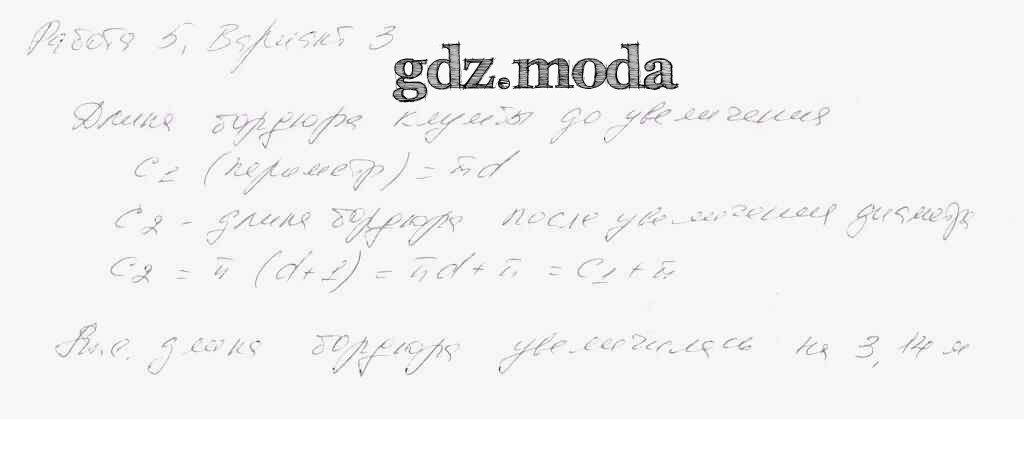 Работа 5, Вариант 3
gdz.moda
Длина бордюра клумбы до увеличения
C₁ (периметр) = πd
C₂ - длина бордюра после увеличения диаметра
C₂ = π (d+1) = πd + π = C₁ + π
длина бордюра увеличилась на 3,14 м